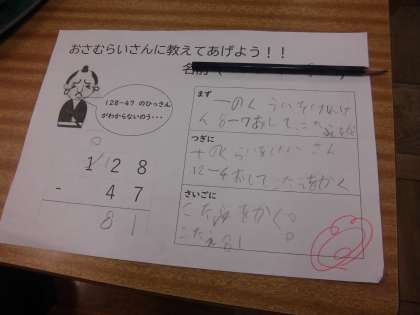 おさむらいさんに教えてあげよう！！
128-47 のひっさん
がわからないのう・・・
0
128
- 47
81
まず
一のくらいをけいさん
8-7おして
つぎに
十のくらいをけいさん
12-4おしてこたえをかく
さいごに
こたえをかく。
こたえ81